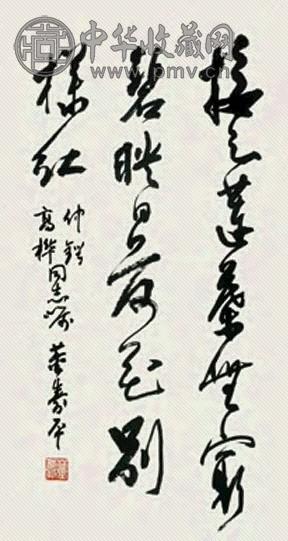 中华收藏网
www.pmv.cn
接天莲叶无穷
碧映日荷花别
样红
仲锷
高桦同志嘱 董寿平